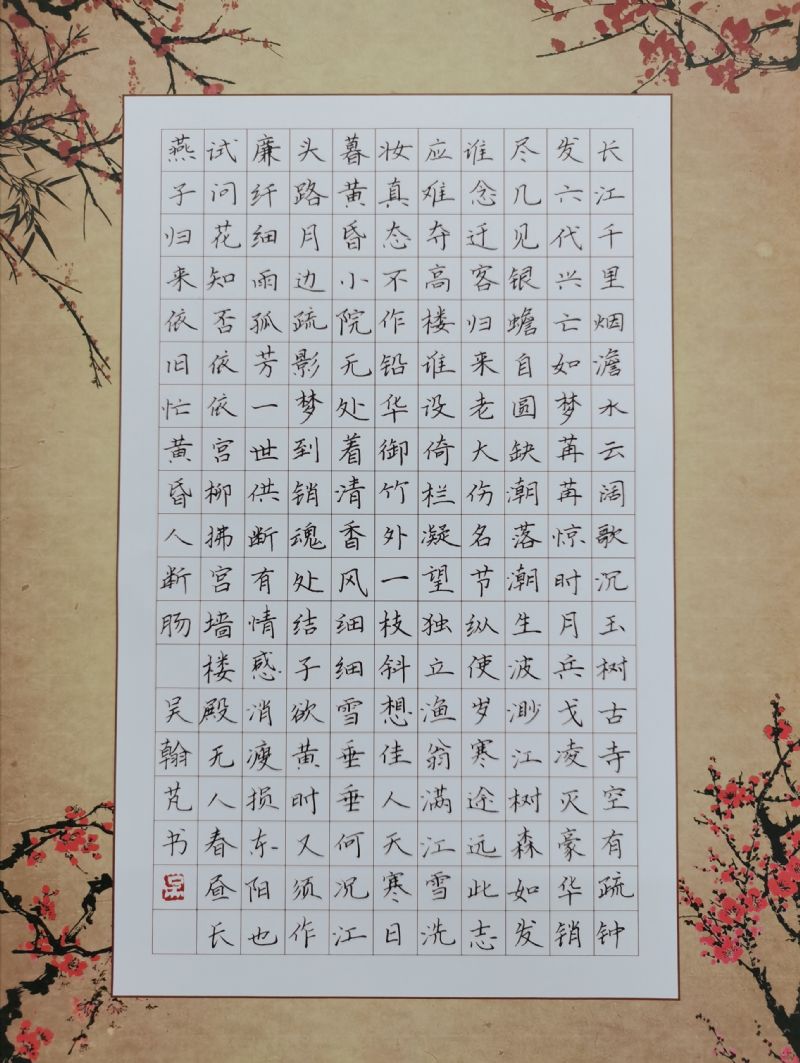 长江千里烟澹水云阔歌沉玉树古寺空有疏钟
发六代兴亡如梦苒苒惊时月兵戈凌灭豪华销
尽几见银蟾自圆缺潮落潮生波渺江树森如发
谁念迁客归来老大伤名节纵使岁寒途远此志
应难夺高楼谁设倚栏凝望独立渔翁满江雪洗
妆真态不作铅华御竹外一枝斜想佳人天寒日
暮黄昏小院无处着清香风细细雪垂垂何况江
头路月边疏影梦到销魂处结子欲黄时又须作
廉纤细雨孤芳一世供断有情感消瘦损东阳也
试问花知否依依宫柳拂宫墙楼殿无人春昼长
燕子归来依旧忙黄昏人断肠 吴翰芃书